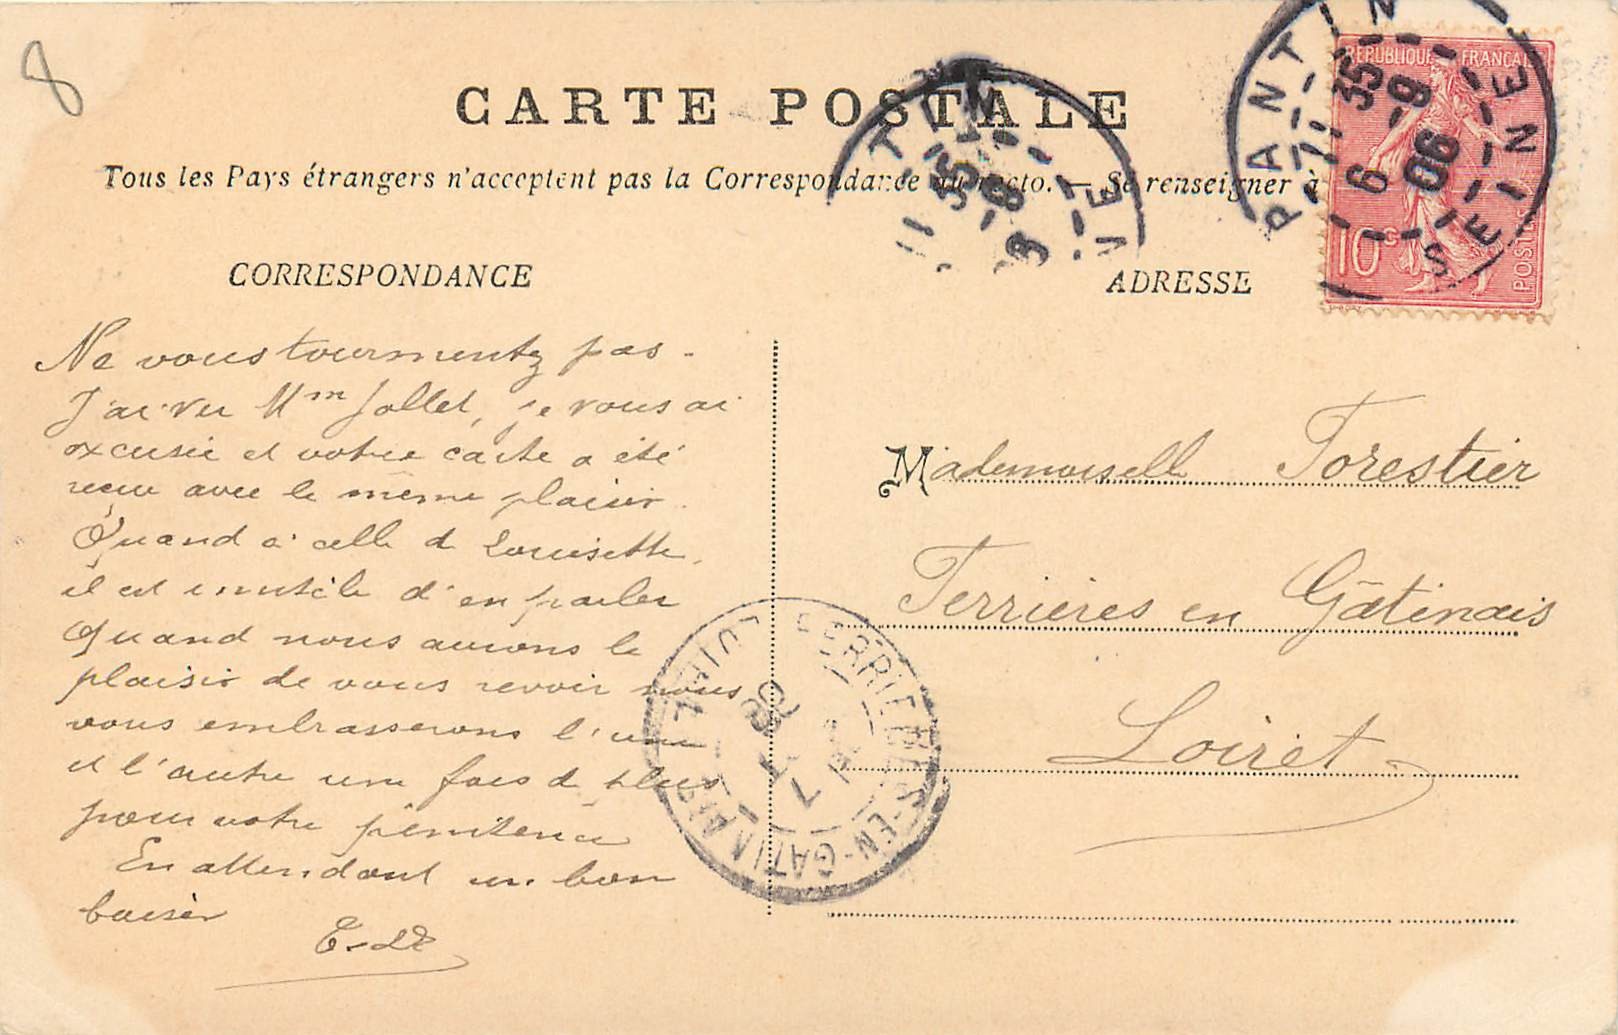 8
CARTE POSTALE
Tous les Pays étrangers n'acceptent pas la Correspondance au recto. — Se renseigner à
CORRESPONDANCE
Ne vous tourmentez pas.
J'ai vu Mme Jollet, je vous ai
excusée et votre carte a été
reçue avec le même plaisir.
Quand à celle de Louisette,
il est inutile d'en parler
Quand nous aurons le
plaisir de vous revoir nous
vous embrasserons l'une
et l'autre une fois de plus
pour votre pénitence
En attendant un bon
baiser
ADRESSE
Mademoiselle Forestier
Ferrieres en Gâtinais
Loiret
REPUBLIQUE FRANÇAISE
10 c
POSTES
PANTIN
11 35
6 - 9
06
SEINE
FERRIERES-EN-GATINAIS
LOIRET